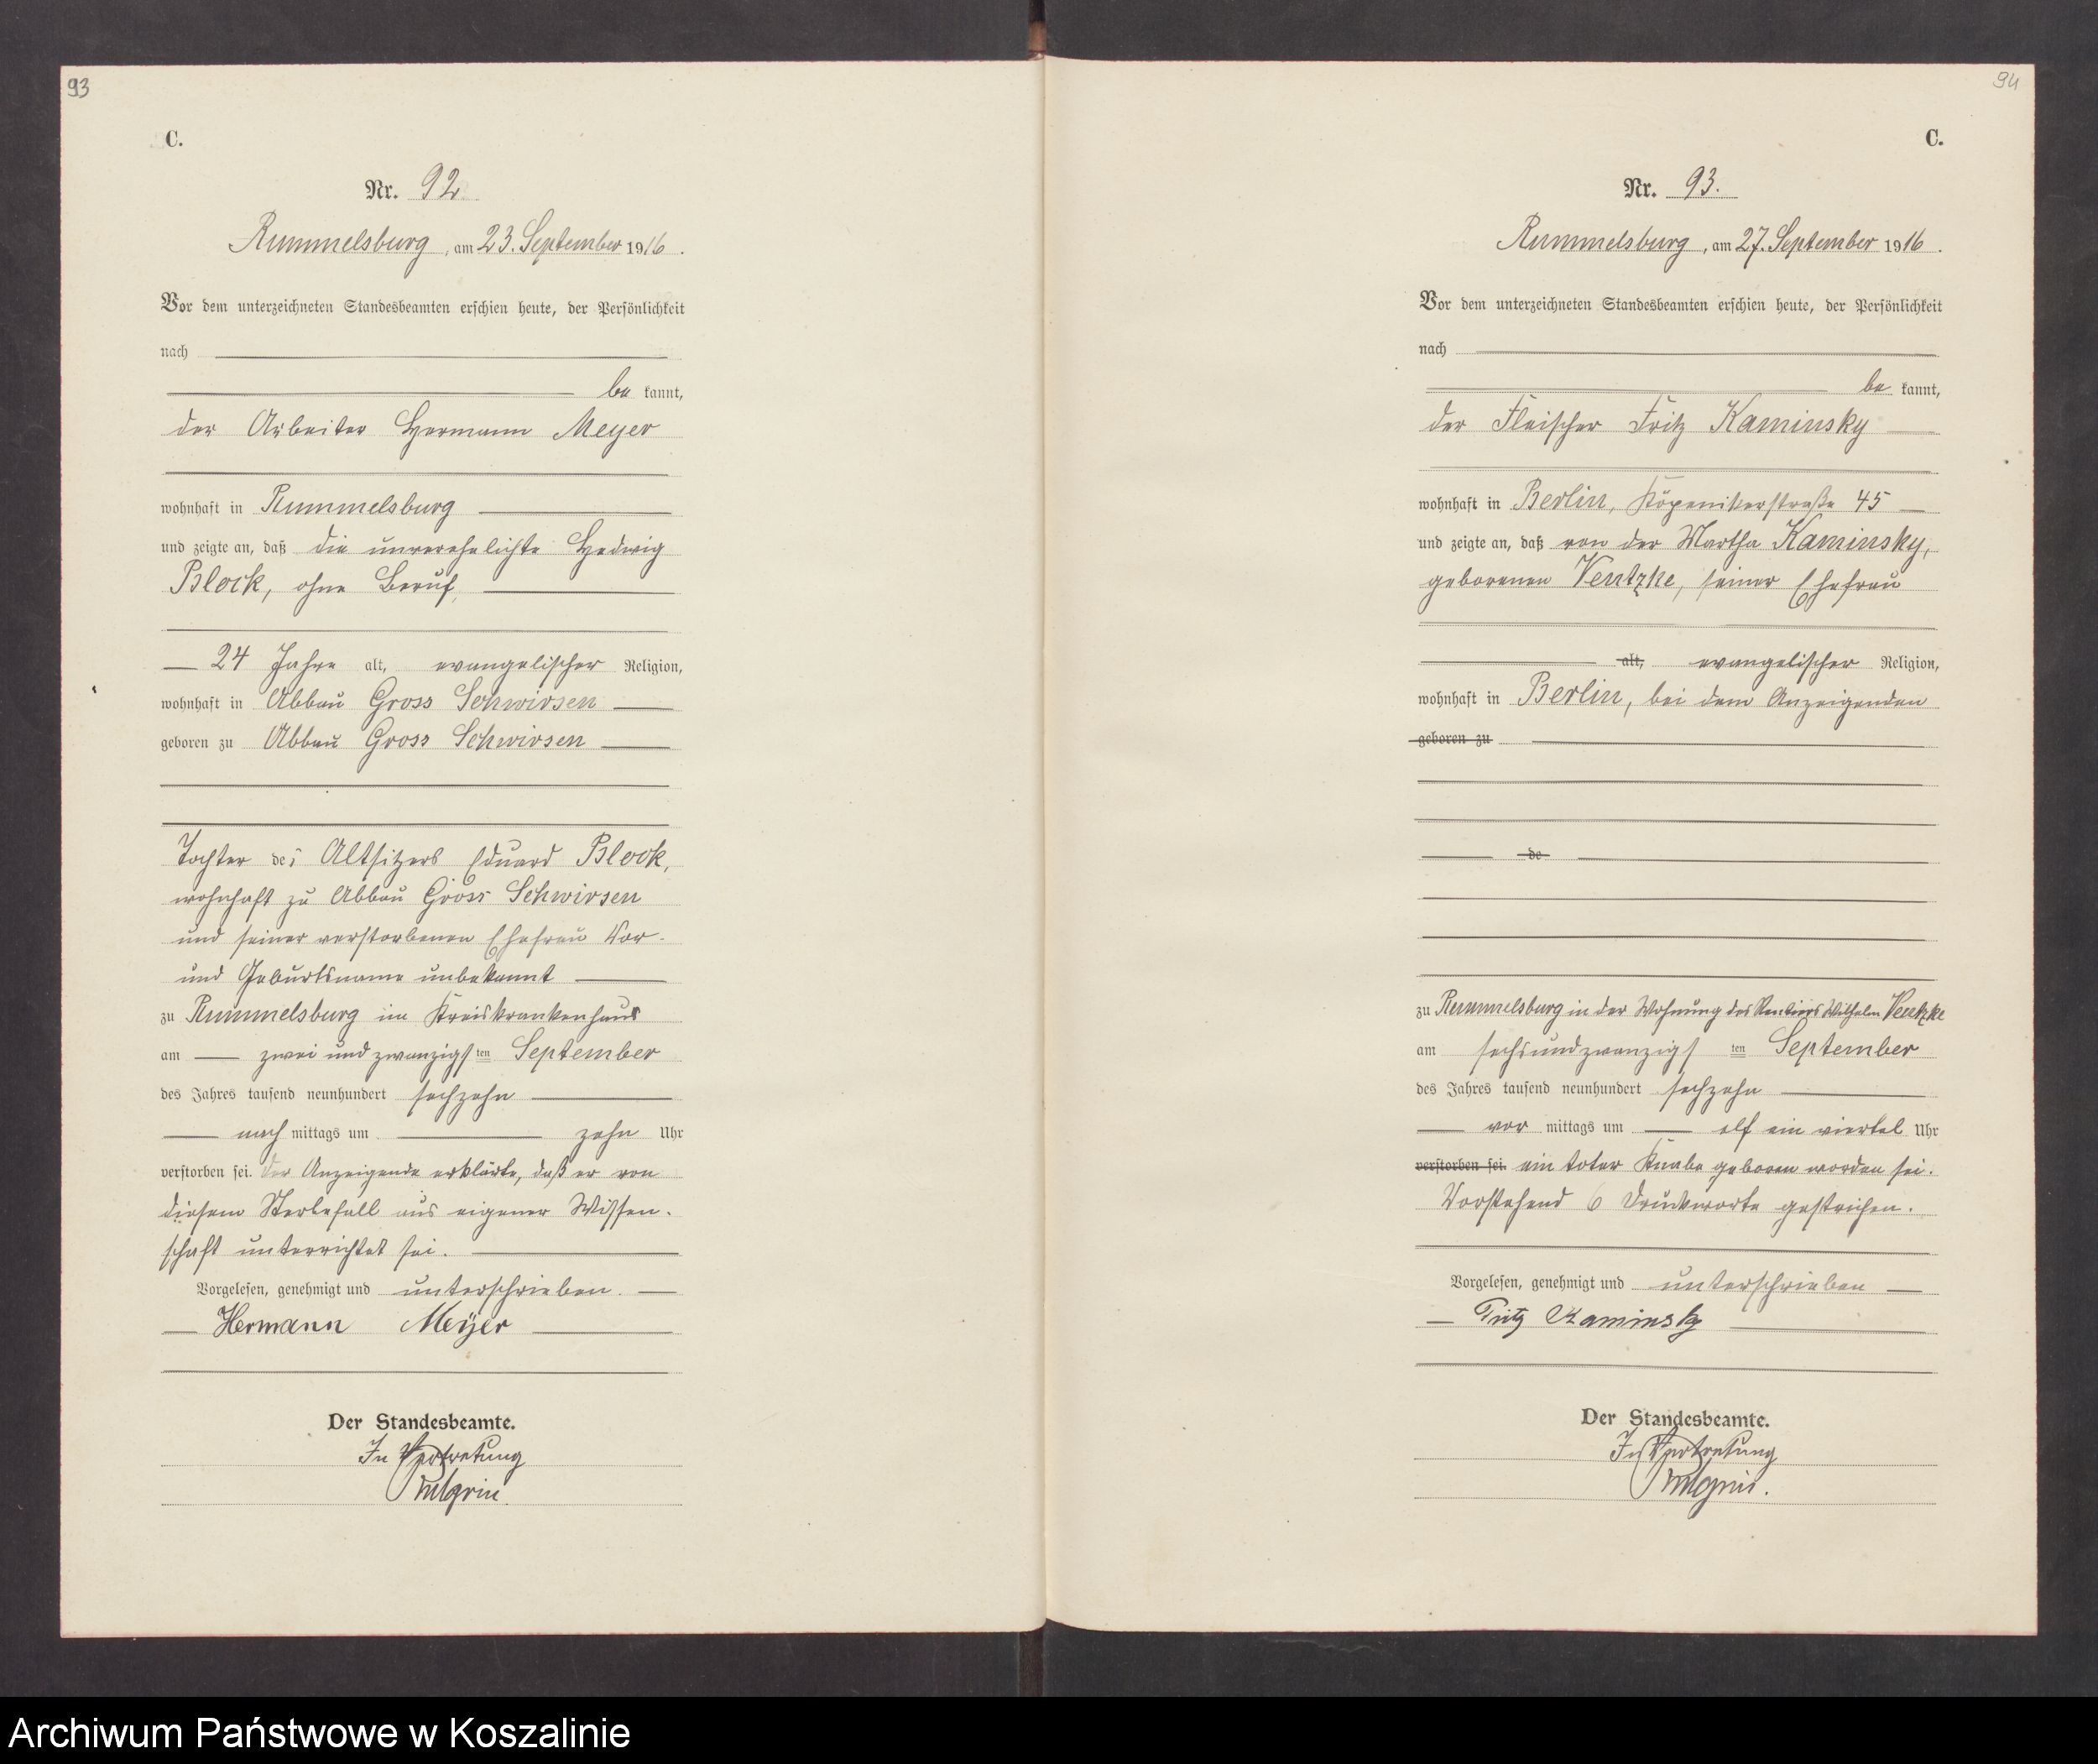 93
C.
Nr. 92
Rummelsburg, am 23. September 1916.
Vor dem unterzeichneten Standesbeamten erschien heute, der Persönlichkeit
nach
be kannt,
der Arbeiter Hermann Meyer
wohnhaft in Rummelsburg
und zeigte an, daß die unverehelichte Hedwig
Block, ohne Beruf,
24 Jahre alt, evangelischer Religion,
wohnhaft in Abbau Gross Schwirsen
geboren zu Abbau Gross Schwirsen
Tochter des Altsitzers Eduard Block,
wohnhaft zu Abbau Gross Schwirsen
und seiner verstorbenen Ehefrau Vor-
und Geburtsname unbekannt
zu Rummelsburg im Kreiskrankenhaus
am zwei und zwanzigsten September
des Jahres tausend neunhundert sechzehn
nach mittags um zehn Uhr
verstorben sei. Der Anzeigende erklärte, daß er von
diesem Sterbefall aus eigener Wissen-
schaft unterrichtet sei.
Vorgelesen, genehmigt und unterschrieben.
Hermann Meyer
Der Standesbeamte.
In Vertretung
94
C.
Nr. 93.
Rummelsburg, am 27. September 1916.
Vor dem unterzeichneten Standesbeamten erschien heute, der Persönlichkeit
nach
be kannt,
der Fleischer Fritz Kaminsky
wohnhaft in Berlin, Köpenikerstraße 45
und zeigte an, daß von der Martha Kaminsky,
geborenen Ventzke, seiner Ehefrau
alt, evangelischer Religion,
wohnhaft in Berlin, bei dem Anzeigenden
geboren zu
de
zu Rummelsburg in der Wohnung des Rentiers Wilhelm Ventzke
am sechsundzwanzigsten September
des Jahres tausend neunhundert sechzehn
vor mittags um elf ein viertel Uhr
verstorben sei. ein toter Knabe geboren worden sei.
Vorstehend 6 Druckworte gestrichen.
Vorgelesen, genehmigt und unterschrieben
Fritz Kaminsky
Der Standesbeamte.
In Vertretung
Archiwum Państwowe w Koszalinie